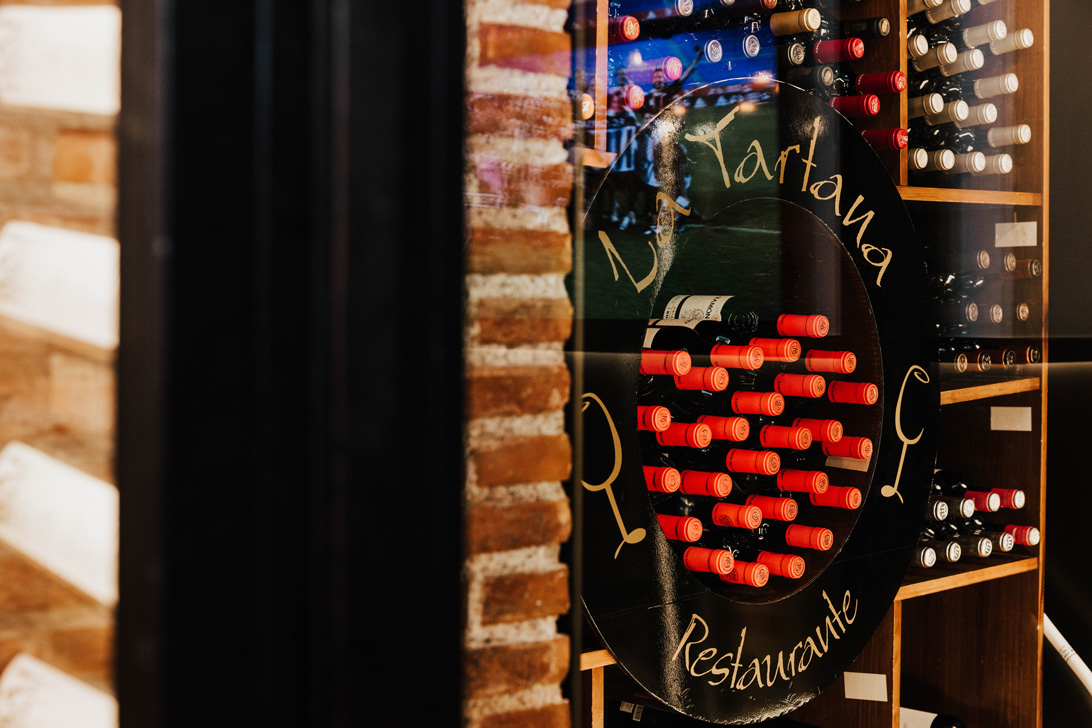 La Tartana
Restaurante